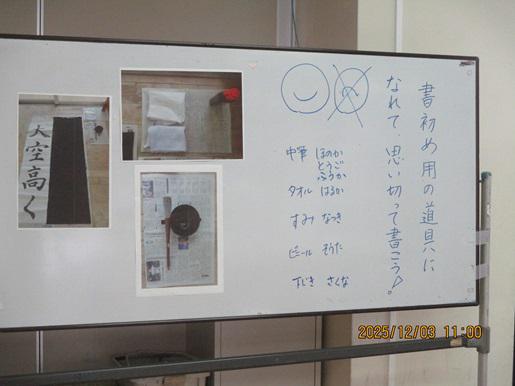 書初め用の道具に
なれて、思い切って書こう!
中筆 ほのか
とうご
ふうか
タオル はるか
すみ なつき
ビニール そうた
ぞうきん さくな
大空高く
2025/12/03 11:00